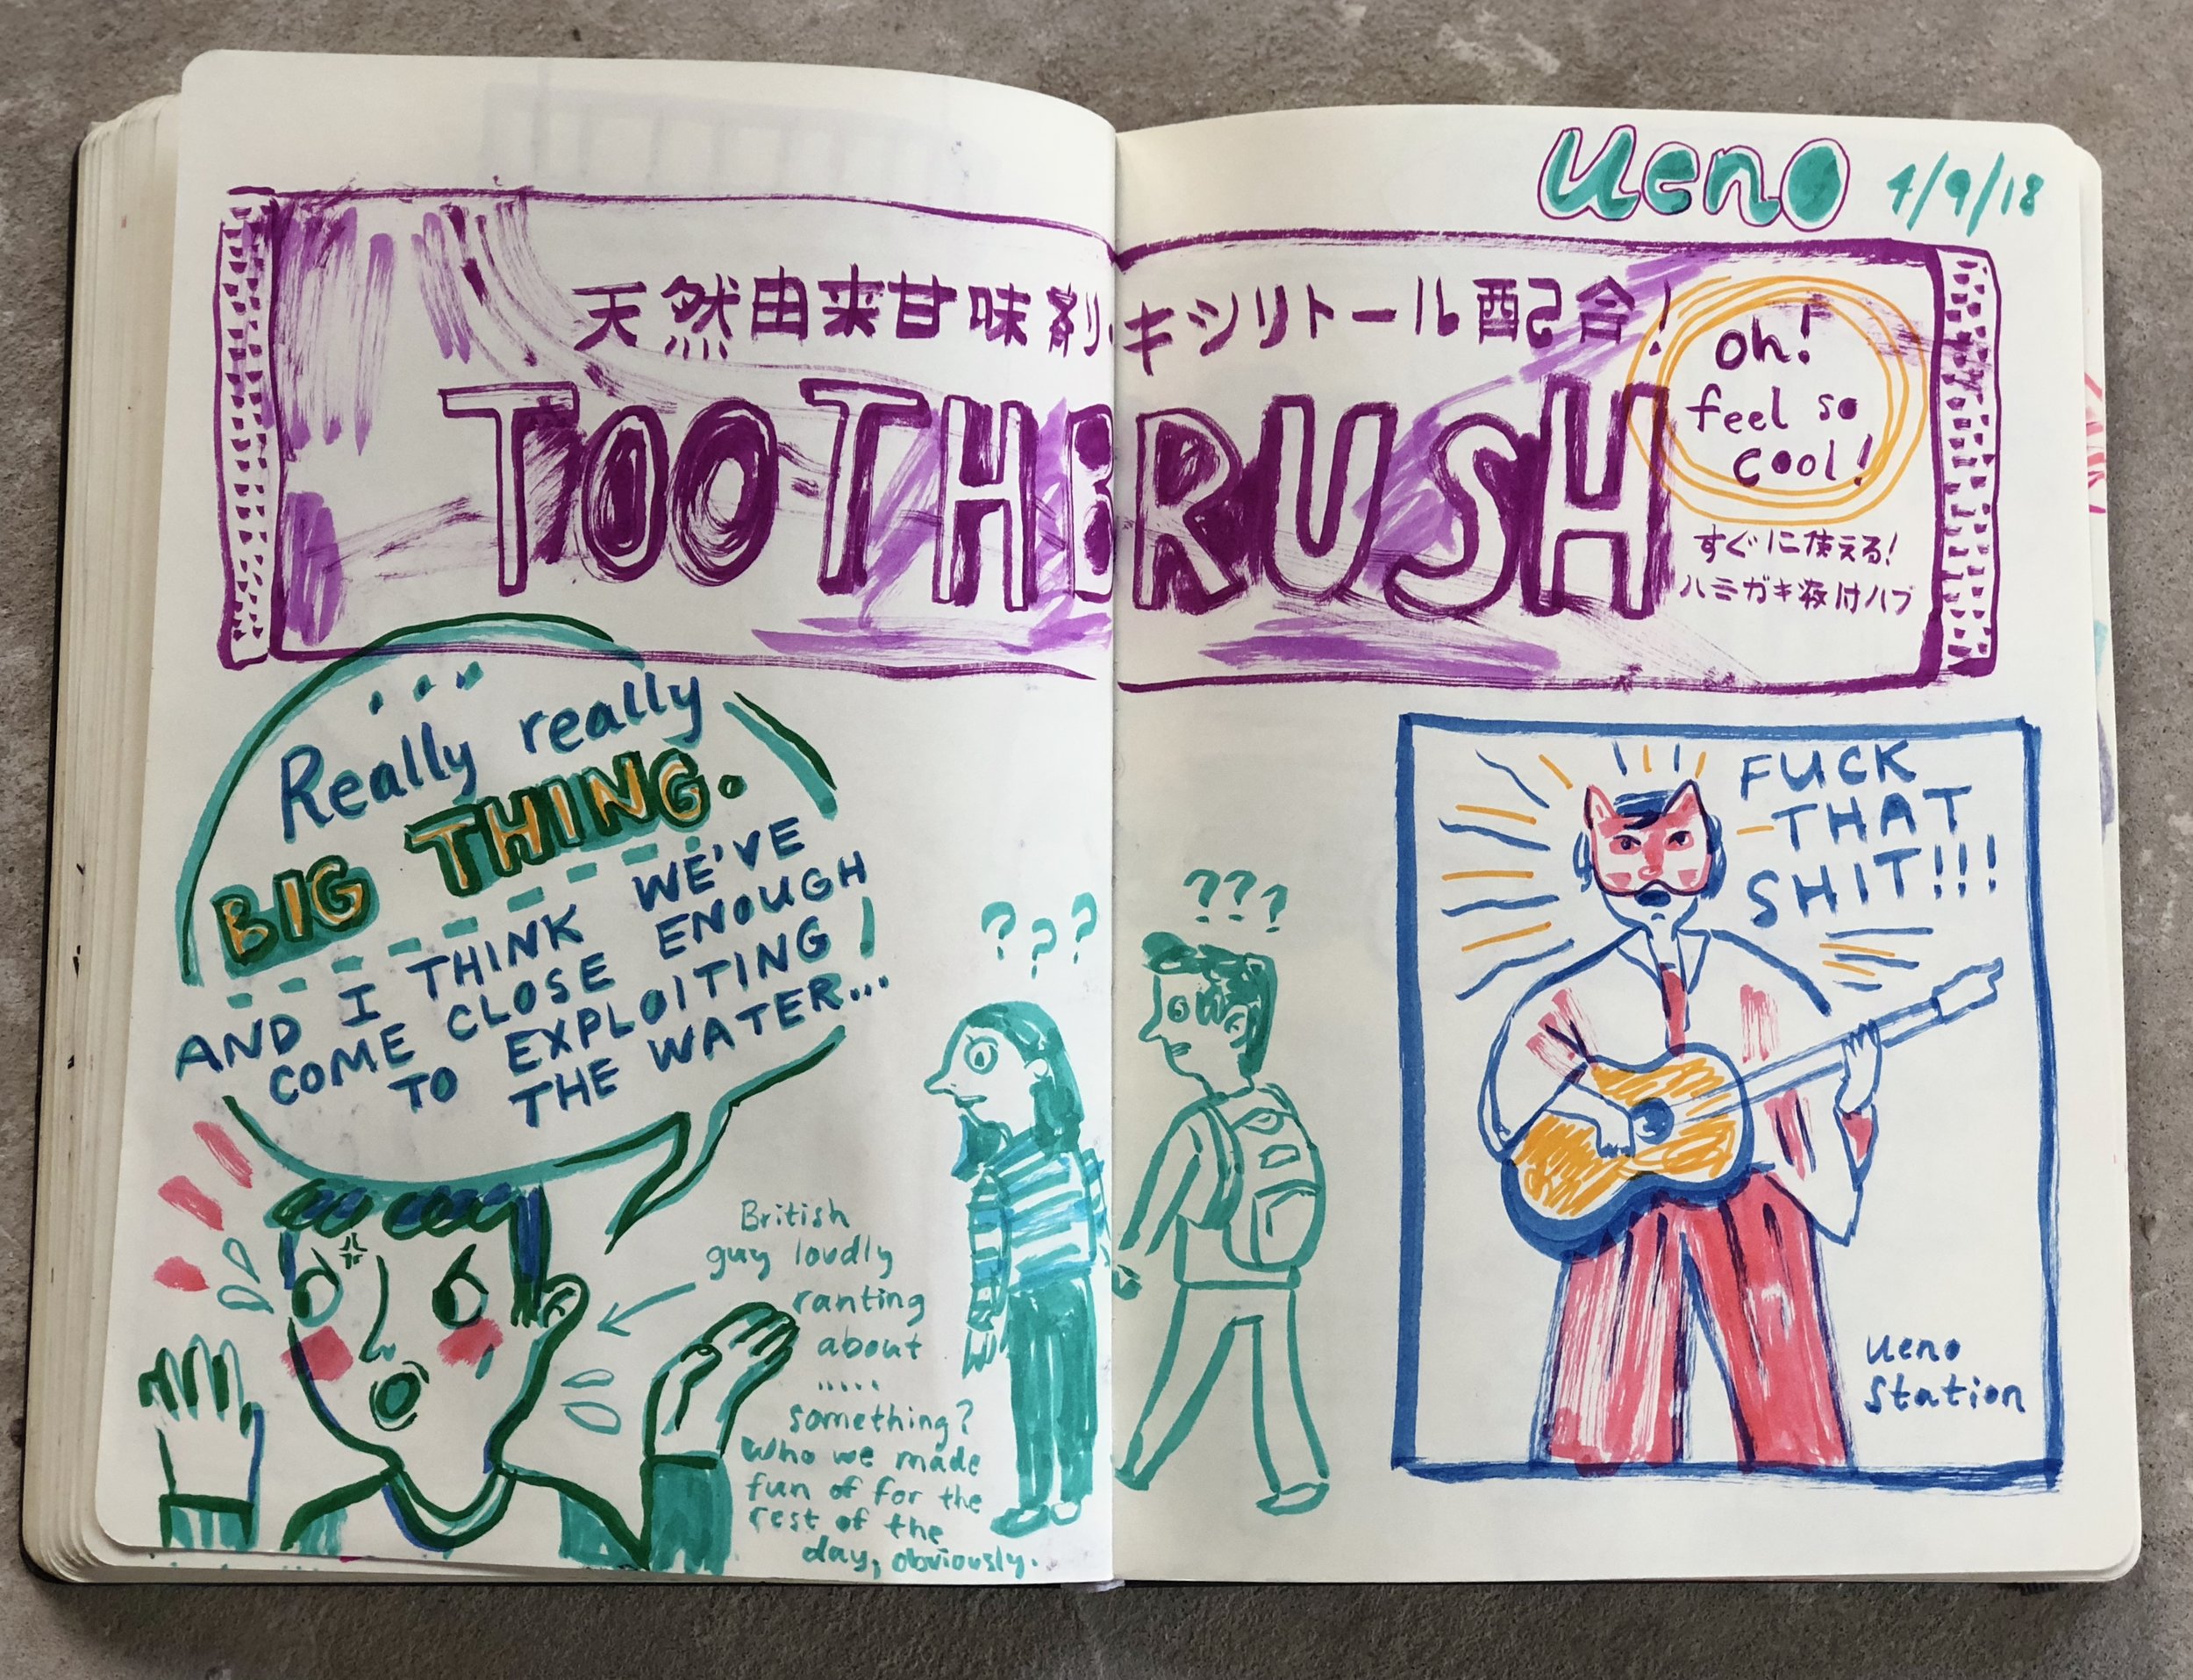 Ueno 4/9/18
天然由来甘味剤リ・キシリトール配合!
TOOTHBRUSH
Oh!
feel so
cool!
すぐに使える!
ハミガキ液付ハブ
... Really really
BIG THING.
AND I THINK WE'VE
COME CLOSE ENOUGH
TO EXPLOITING
THE WATER...
British
guy loudly
ranting
about
.....
something?
Who we made
fun of for the
rest of the
day, obviously.
???
???
FUCK
THAT
SHIT!!!
Ueno
Station